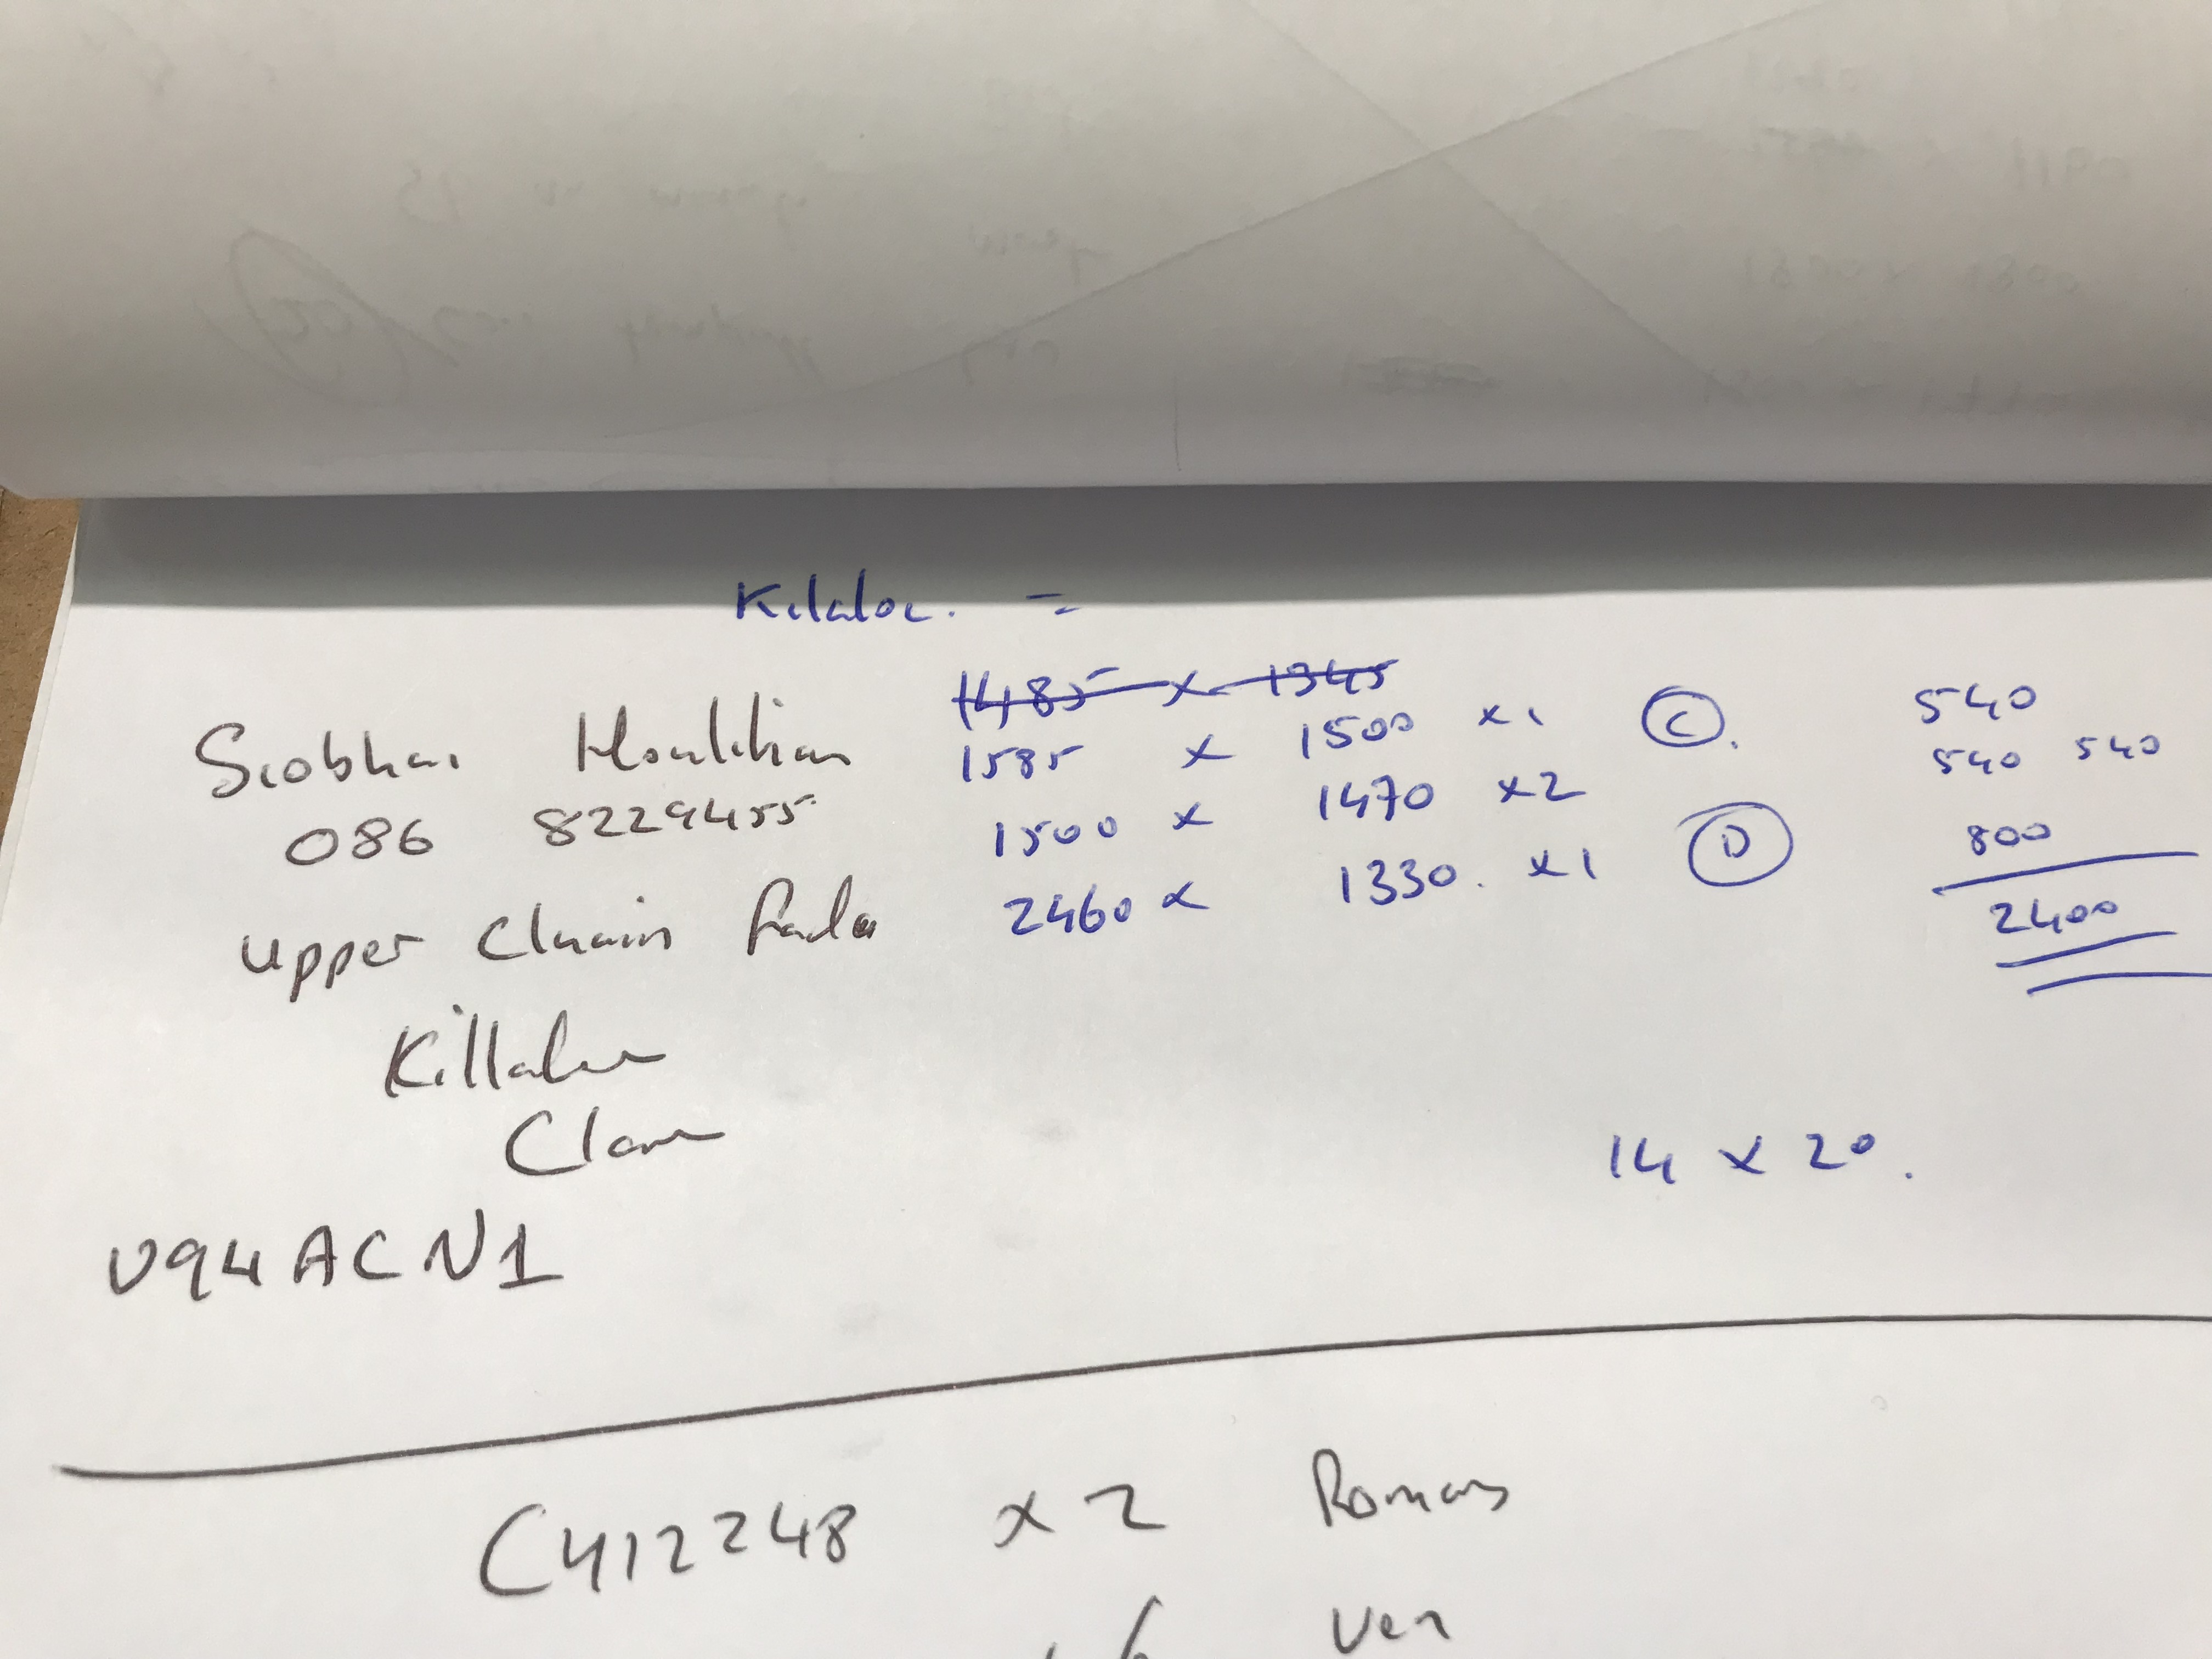 Kilaloe. =
1485 x 1345
Siobhan Houlihan 1585 x 1500 x1 C. 540
086 8229455 1500 x 1470 x2 540 540
Upper Cluain fada 2460 x 1330. x1 D 800
2400
Killaloe
Clare
14 x 20.
V94ACN1
C412248 x 2 Romans
Ven